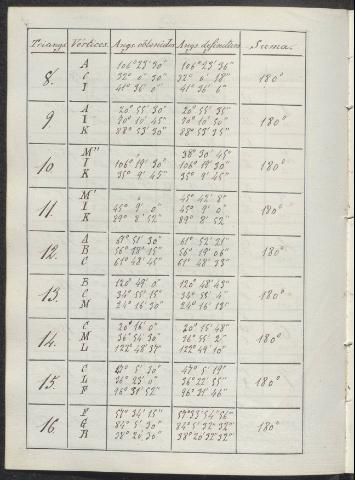 Triangs Vértices Angs obtenidos Angs definitivos Suma.
A 106° 23' 30" 106° 23' 36"
8. C 32° 0' 30" 32° 0' 18" 180°
I 41° 36' 0" 41° 36' 6"
A 20° 55' 30" 20° 55' 35"
9. I 70° 10' 45" 70° 10' 50" 180°
K 88° 53' 30" 88° 53' 35"
M" 38° 30' 45"
10 I 106° 19' 30" 106° 19' 30" 180°
K 35° 9' 45" 35° 9' 45"
M' 45° 42' 8"
11. I 45° 9' 0" 45° 9' 0" 180°
K 89° 8' 52" 89° 8' 52"
A 61° 51' 30" 61° 52' 21"
12. B 56° 18' 15" 56° 19' 06" 180°
C 61° 48' 45" 61° 48' 33"
B 120° 49' 0" 120° 48' 43"
13. C 34° 55' 15" 34° 55' 4" 180°
M 24° 16' 30" 24° 16' 13"
C 20° 16' 0" 20° 15' 48"
14. M 36° 54' 30" 36° 55' 2" 180°
L 122° 48' 37" 122° 49' 10"
C 47° 5' 30" 47° 5' 19"
15. L 36° 23' 0" 36° 22' 55" 180°
F 96° 31' 52" 96° 31' 46"
F 57° 34' 15" 57° 33' 54' 56"
16. G 84° 5' 30" 84° 5' 32' 32" 180°
R 38° 20' 30" 38° 20' 32' 32"